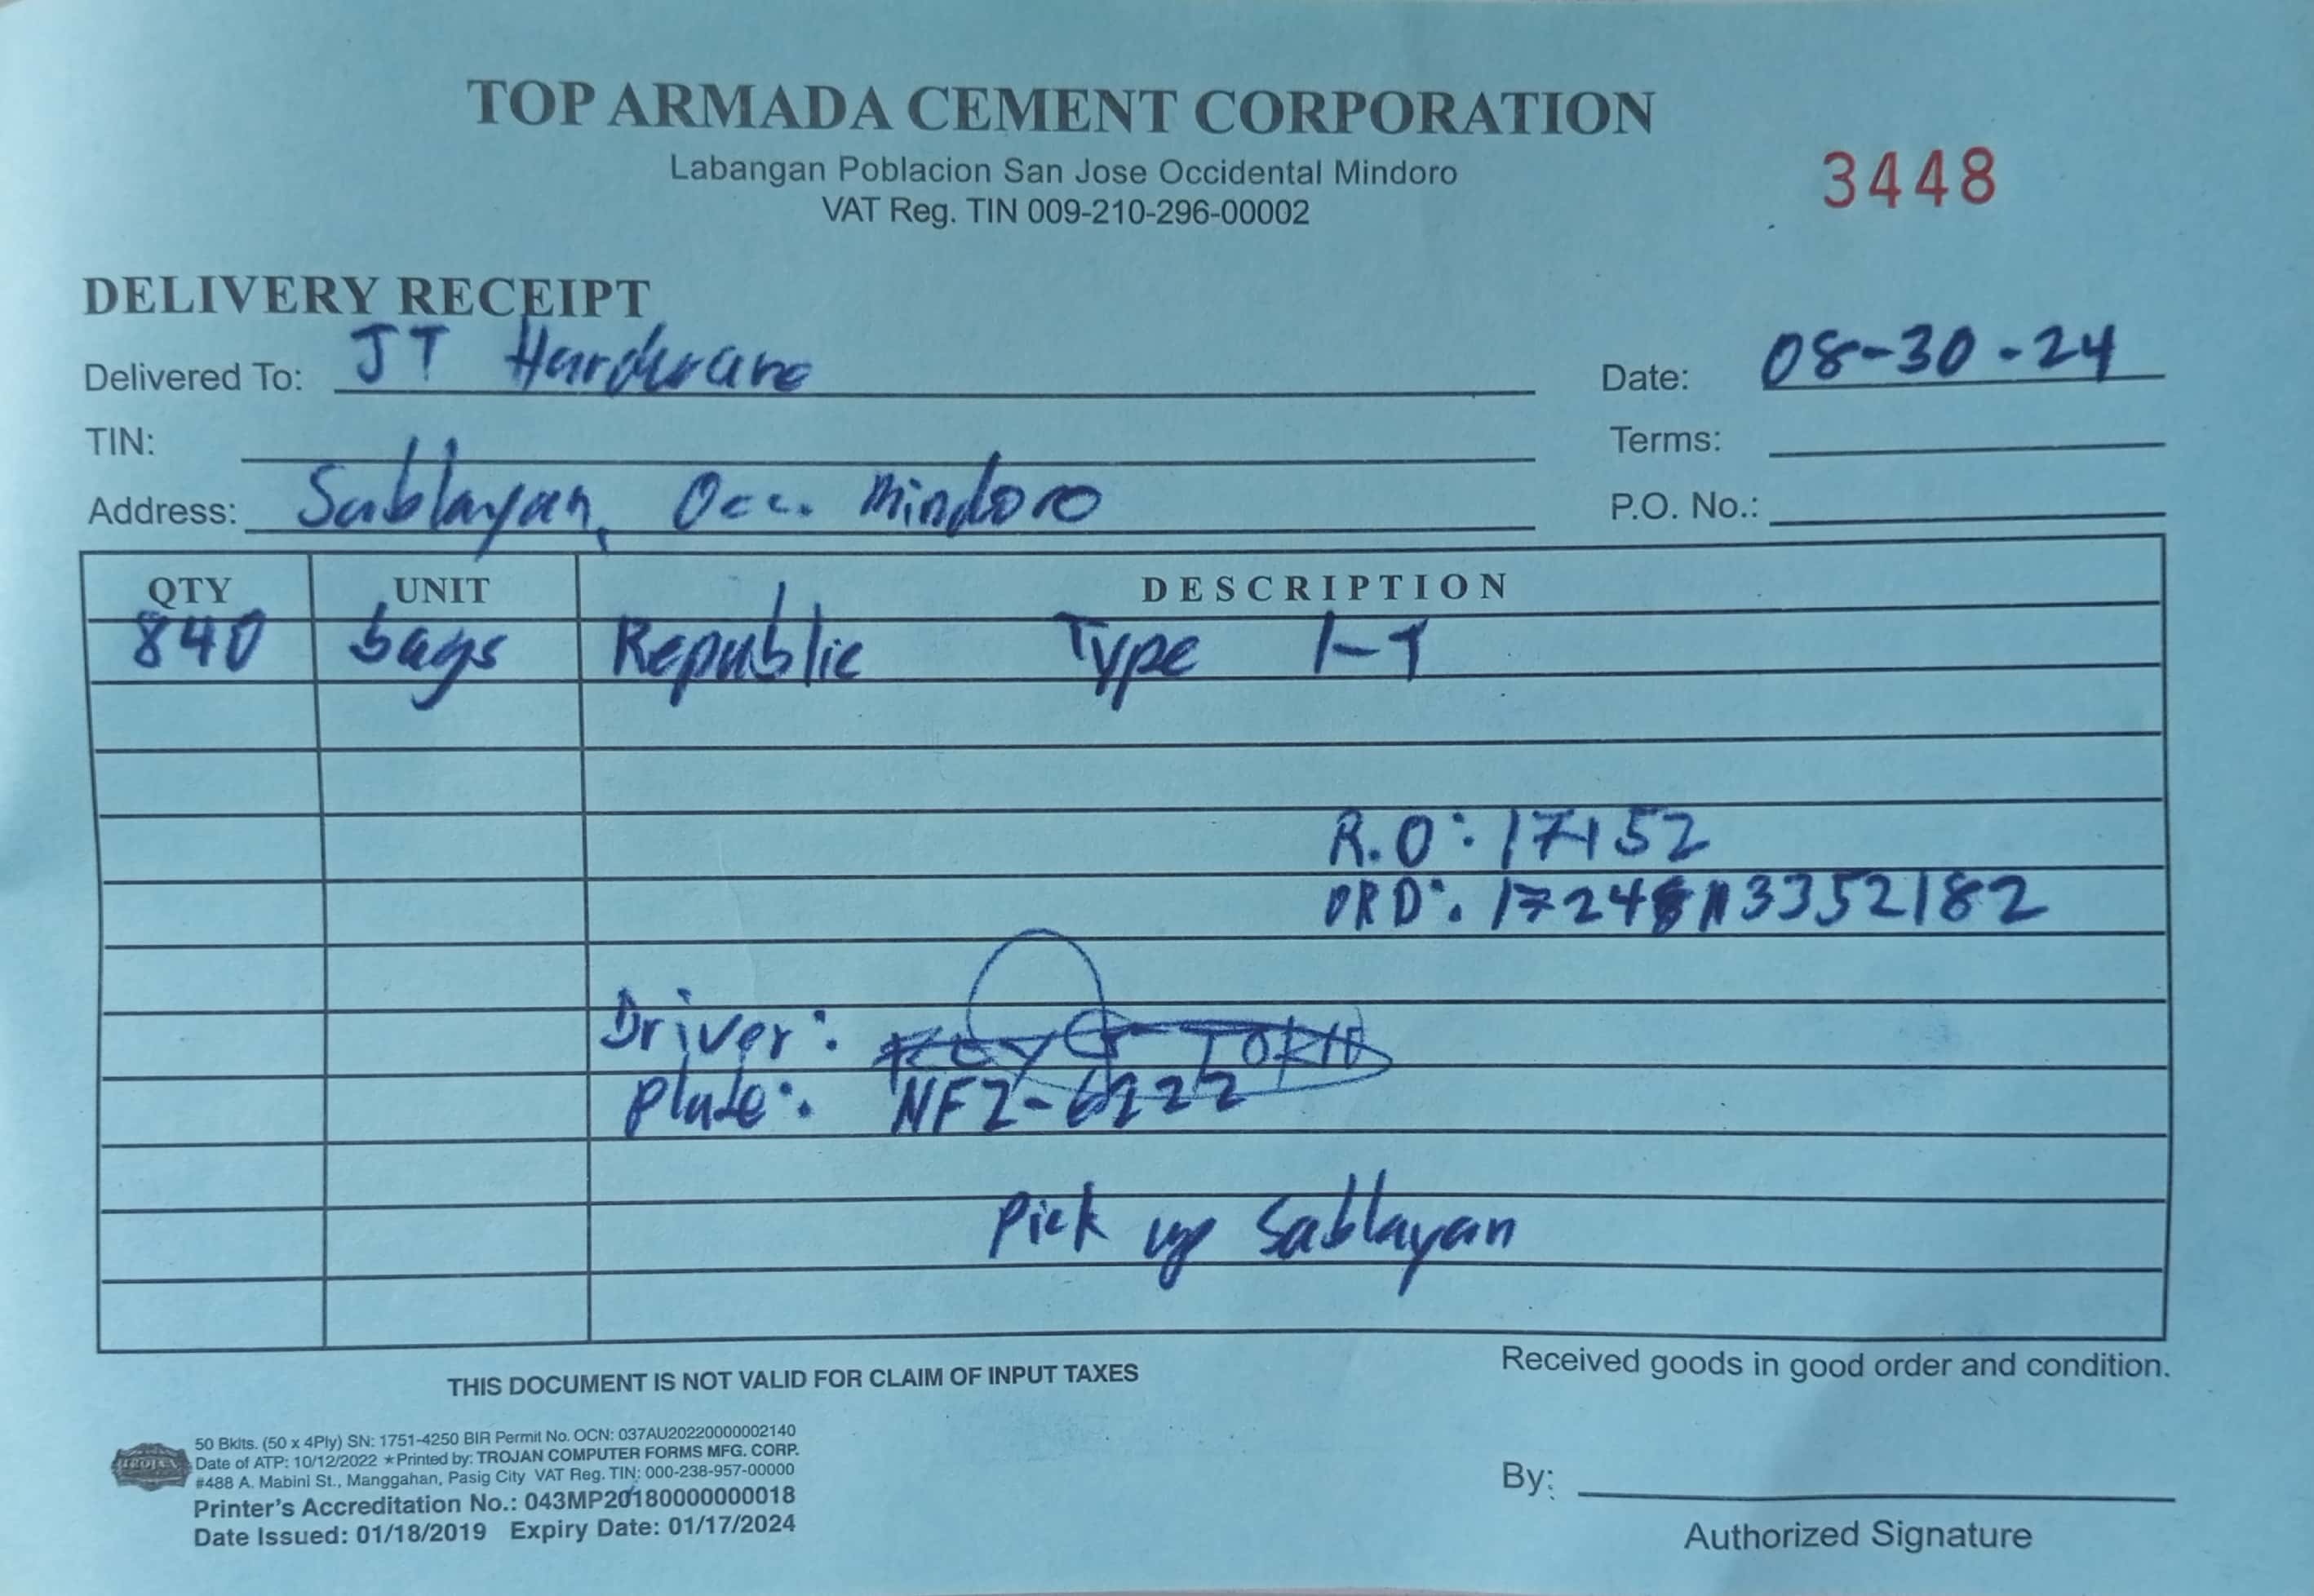 TOP ARMADA CEMENT CORPORATION
Labangan Poblacion San Jose Occidental Mindoro
VAT Reg. TIN 009-210-296-00002
3448
DELIVERY RECEIPT
Delivered To: JT Hardware
Date: 08-30-24
TIN:
Terms:
Address: Sablayan, Occ. Mindoro
P.O. No.:
QTY UNIT DESCRIPTION
840 bags Republic Type 1-T
R.O: 17152
DRD:
Driver:
Plate: NFZ-6222
Pick up Sablayan
THIS DOCUMENT IS NOT VALID FOR CLAIM OF INPUT TAXES
Received goods in good order and condition.
TROJAN
50 Bklts. (50 x 4Ply) SN: 1751-4250 BIR Permit No. OCN: 037AU20220000002140
Date of ATP: 10/12/2022 ★Printed by: TROJAN COMPUTER FORMS MFG. CORP.
#488 A. Mabini St., Manggahan, Pasig City VAT Reg. TIN: 000-238-957-00000
Printer's Accreditation No.: 043MP20180000000018
Date Issued: 01/18/2019 Expiry Date: 01/17/2024
By:
Authorized Signature